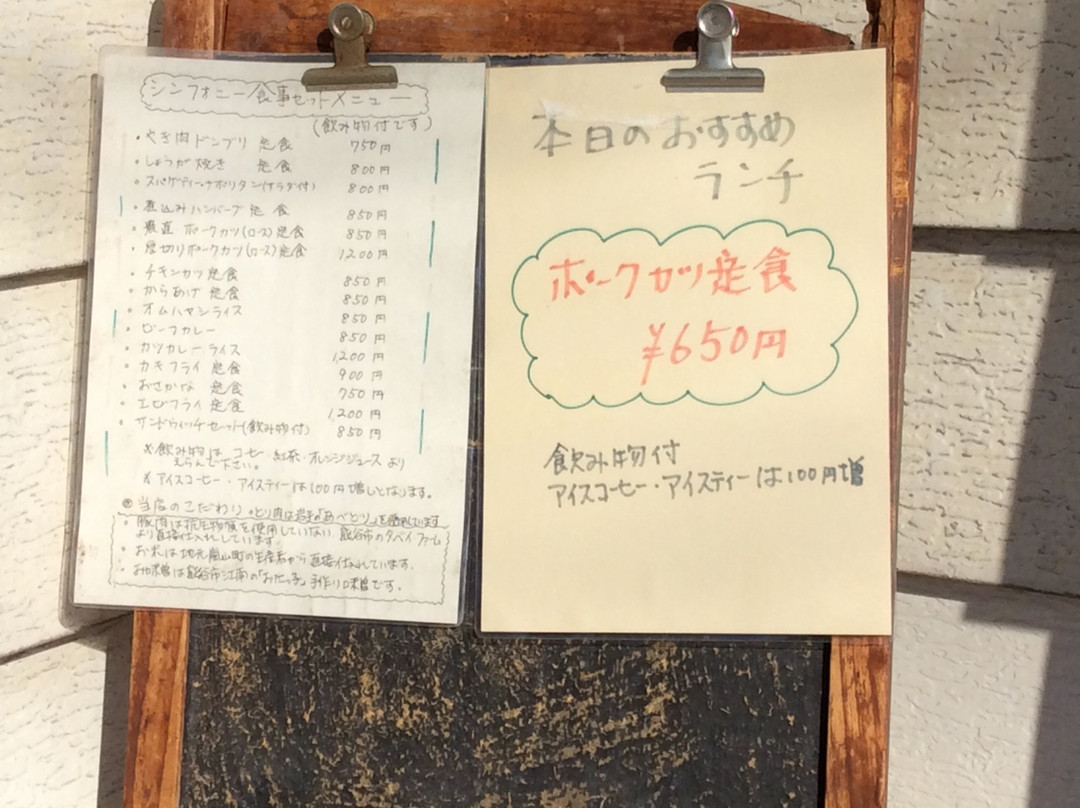 シンフォニー食事セットメニュー
(飲み物付です)
・やき肉ドンブリ 定食 750円
・しょうが焼き 定食 800円
・スパゲティーナポリタン(サラダ付) 800円
・煮込みハンバーグ定食 850円
・ポークカツ(ロース)定食 850円
・厚切りポークカツ(ロース)定食 1200円
・チキンカツ定食 850円
・からあげ定食 850円
・オムハヤシライス 850円
・ビーフカレー 850円
・カツカレーライス 1200円
・カキフライ定食 900円
・おさかな定食 750円
・エビフライ定食 1,200円
・サンドウィッチセット(飲み物付) 850円
※飲み物は コーヒー・紅茶・オレンジジュースより
えらんで下さい。
※アイスコーヒー・アイスティーは100円増しとなります。
◎当店のこだわり ・とり肉は岩手の「あべどり」を使用しています
・豚肉は抗生物質を使用していない 熊谷市のタバイファーム
より直接仕入れしています。
・お米は地元嵐山町の生産者から直接仕入しています。
・お味噌は熊谷市江南の「おたっ子」手作り味噌です。
本日のおすすめ
ランチ
ポークカツ定食
¥650円
飲み物付
アイスコーヒー・アイスティーは100円増